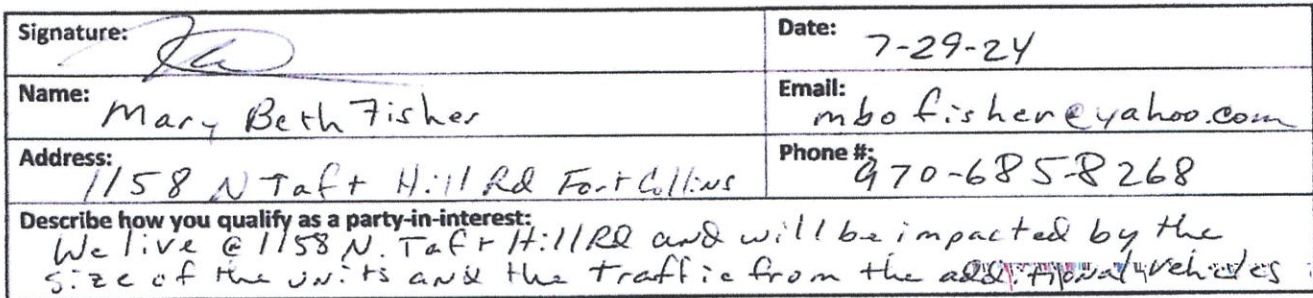 Signature:
Date: 7-29-24
Name: Mary Beth Fisher
Email: mbofisher@yahoo.com
Address: 1158 N Taft Hill Rd Fort Collins
Phone #: 970-685-8268
Describe how you qualify as a party-in-interest:
We live @ 1158 N. Taft Hill Rd and will be impacted by the
size of the units and the traffic from the additional vehicles